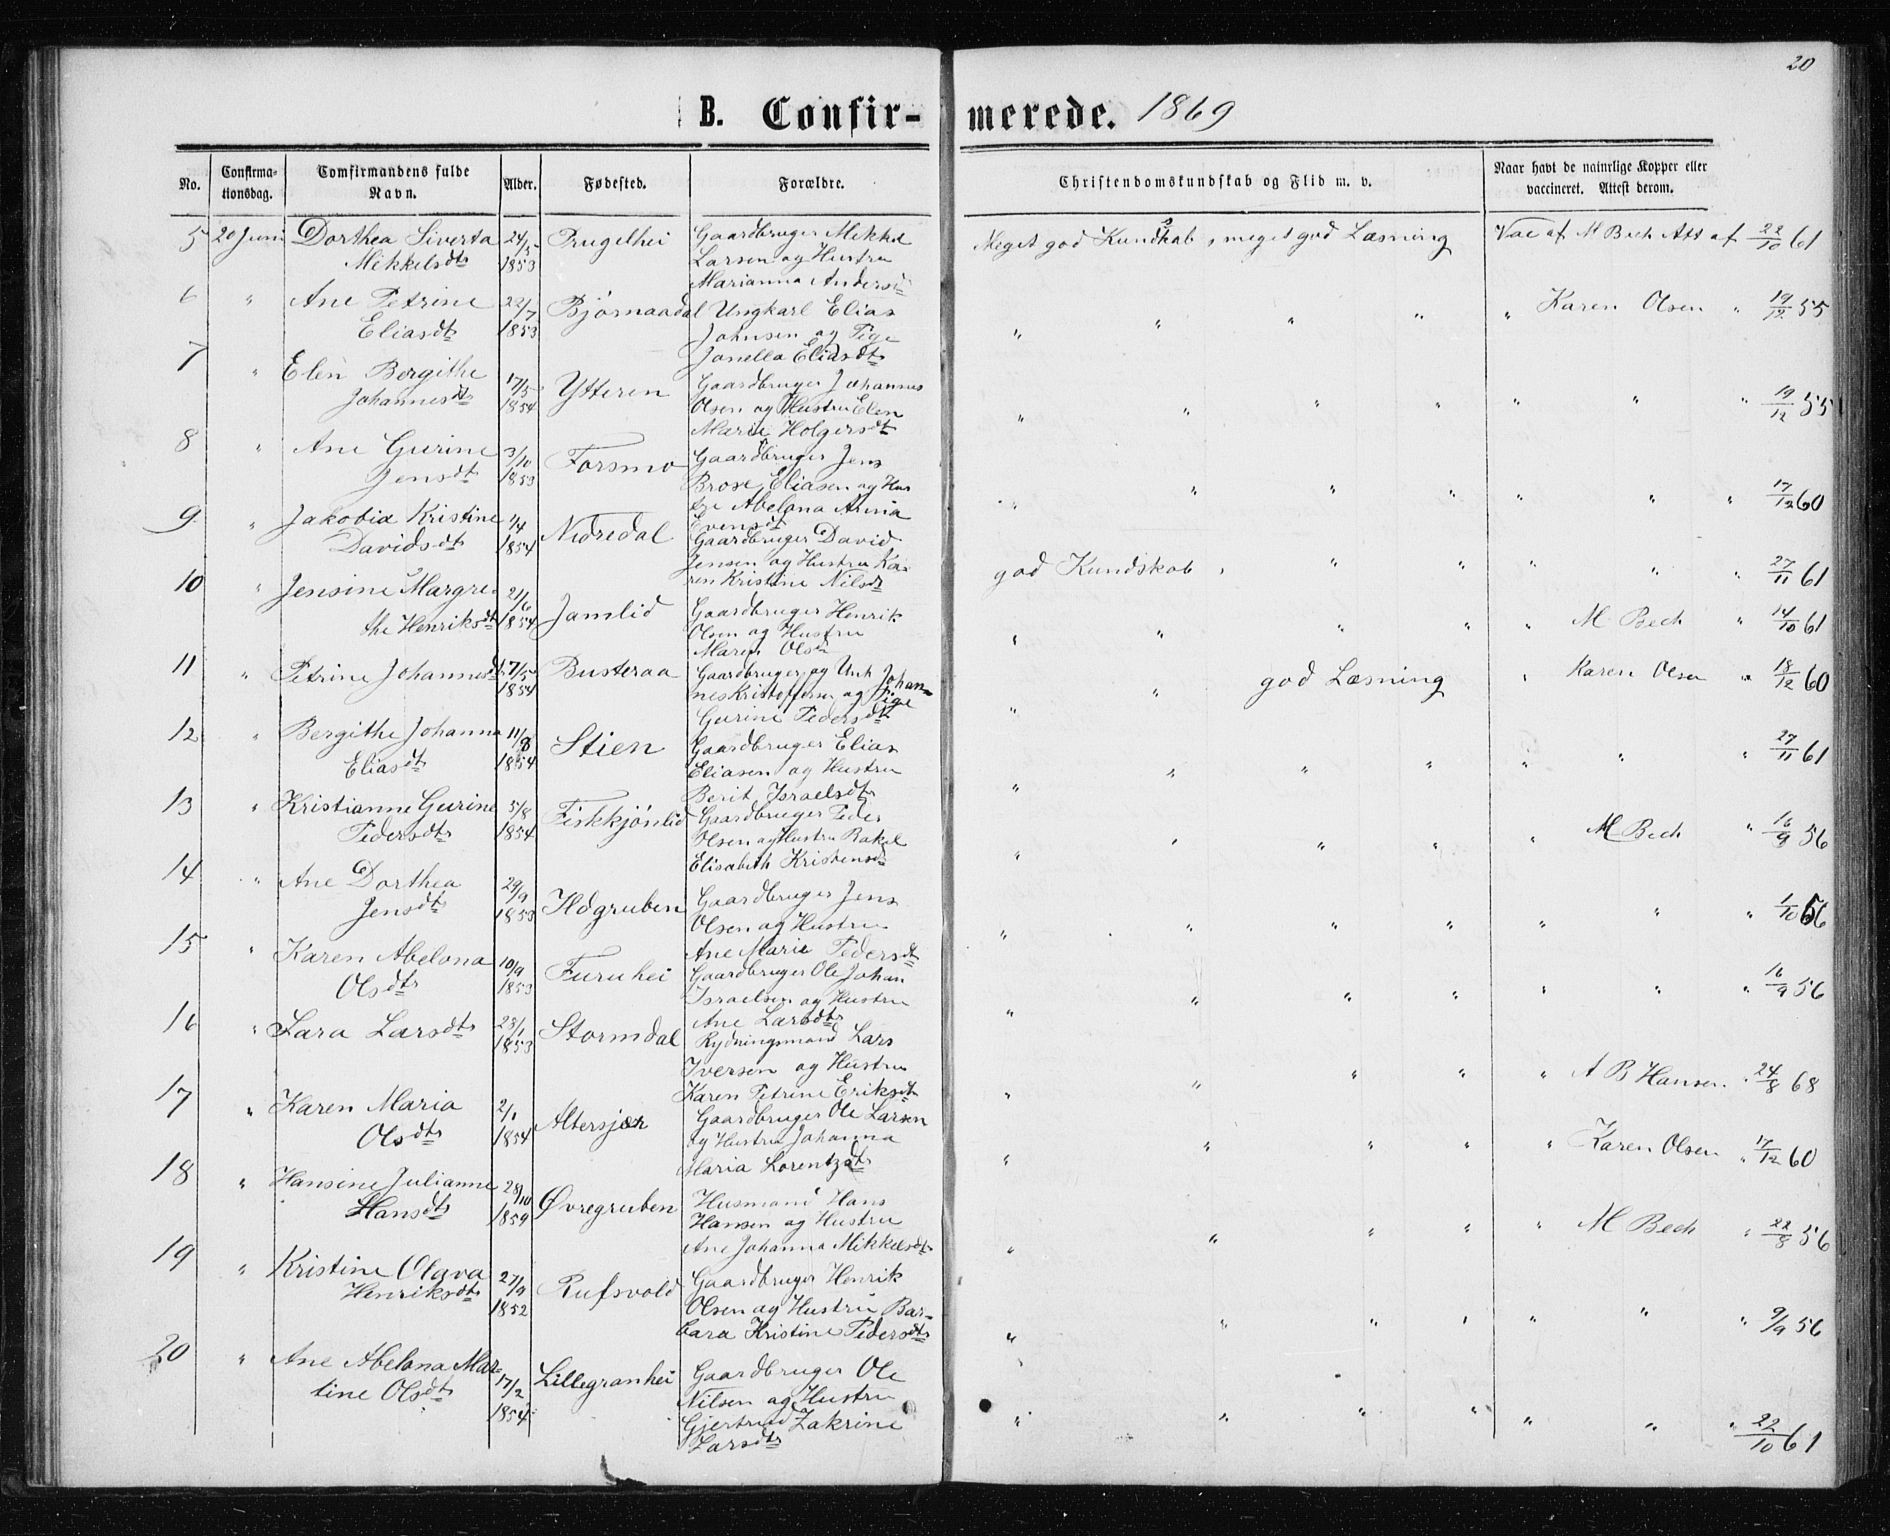 20
B. Confirmerede. 1869
No. Confirmationsdag. Comfirmandens fulde Navn. Alder. Fødested. Forældre. Christendomskundskab og Flid m. v. Naar havt de naturlige Kopper eller vaccineret. Attest derom.
5 20 Juni Dorthea Siverta 24/5 Prugelhei Gaardbruger Mikkel Meget god Kundskab, meget god Læsning Vac af M Bech Att af 22/10 61
Mikkelsdtr 1853 Larsen og Hustru
Marianna Andersdtr
6 " Ane Petrine 22/7 Bjørnaadal Ungkarl Elias " " " " " Karen Olsen " 19/12 55
Eliasdtr 1853 Johnsen og Pige
Janella Eliasdtr
7 " Elen Bergithe 17/5 Ytteren Gaardbruger Johannes " " " " " " " 19/12 55
Johannesdtr 1854 Olsen og Hustru Elen
Marie Holgersdtr
8 " Ane Gurine 3/10 Forsmo Gaardbruger Jens " " " " " " " 17/12 60
Jensdtr 1853 Brose Eliasen og Hus
tru Abelona Anna
Evensdtr
9 " Jakobia Kristine 1/4 Nidredal Gaardbruger David god Kundskab, " " " " " 27/11 61
Davidsdtr 1854 Jensen og Hustru Ka-
ren Kristine Nilsdtr
10 " Jensine Margre- 21/6 Jamlid Gaardbruger Henrik " " " " " M Bech " 14/10 61
the Henriksdtr 1854 Olsen og Hustru
Maren Olsdtr
11 " Petrine Johannesdtr 7/5 Busteraa Gaardbruger og Unk Johan- " " god Læsning " Karen Olsen " 18/12 60
1854 nes Kristoffersen og Pige
Gurine Pedersdtr
12 " Bergithe Johanna 11/8 Stien Gaardbruger Elias " " " " " " " 27/11 61
Eliasdtr 1854 Eliasen og Hustru
Berit Israelsdtr
13 " Kristianne Gurine 5/8 Fiskkjønlid Gaardbruger Peder " " " " " M Bech " 16/9 56
Pedersdtr 1854 Olsen og Hustru Rakel
Elisabeth Kristensdtr
14 " Ane Dorthea 29/9 Hdgruben Gaardbruger Jens " " " " " " " 1/10 56
Jensdtr 1853 Olsen og Hustru
Ane Marie Pedersdtr
15 " Karen Abelona 10/9 Furuhei Gaardbruger Ole Johan " " " " " " " 16/9 56
Olsdtr 1853 Israelsen og Hustru
Ane Larsdtr
16 " Lara Larsdtr 23/1 Stormdal Rydningsmand Lars " " " " " A B Hansen " 24/8 68
1853 Iversen og Hustru
Karen Petrine Eriksdtr
17 " Karen Maria 2/1 Altersjøen Gaardbruger Ole Larsen " " " " " Karen Olsen " 17/12 60
Olsdtr 1854 og Hustru Johanna
Maria Lorentzdtr
18 " Hansine Julianne 28/10 Øvregruben Husmand Hans " " " " " M Bech " 22/8 56
Hansdtr 1854 Hansen og Hustru
Ane Johanna Mikkelsdtr
19 " Kristine Olava 27/9 Rufsvold Gaardbruger Henrik " " " " " " " 9/9 56
Henriksdtr 1852 Olsen og Hustru Bar-
bara Kristine Pedersdtr
20 " Ane Abelona Mar- 17/2 Lillegranhei Gaardbruger Ole " " " " " " " 22/10 61
tine Olsdtr 1854 Nilsen og Hustru
Gjertrud Zakrine
Larsdtr